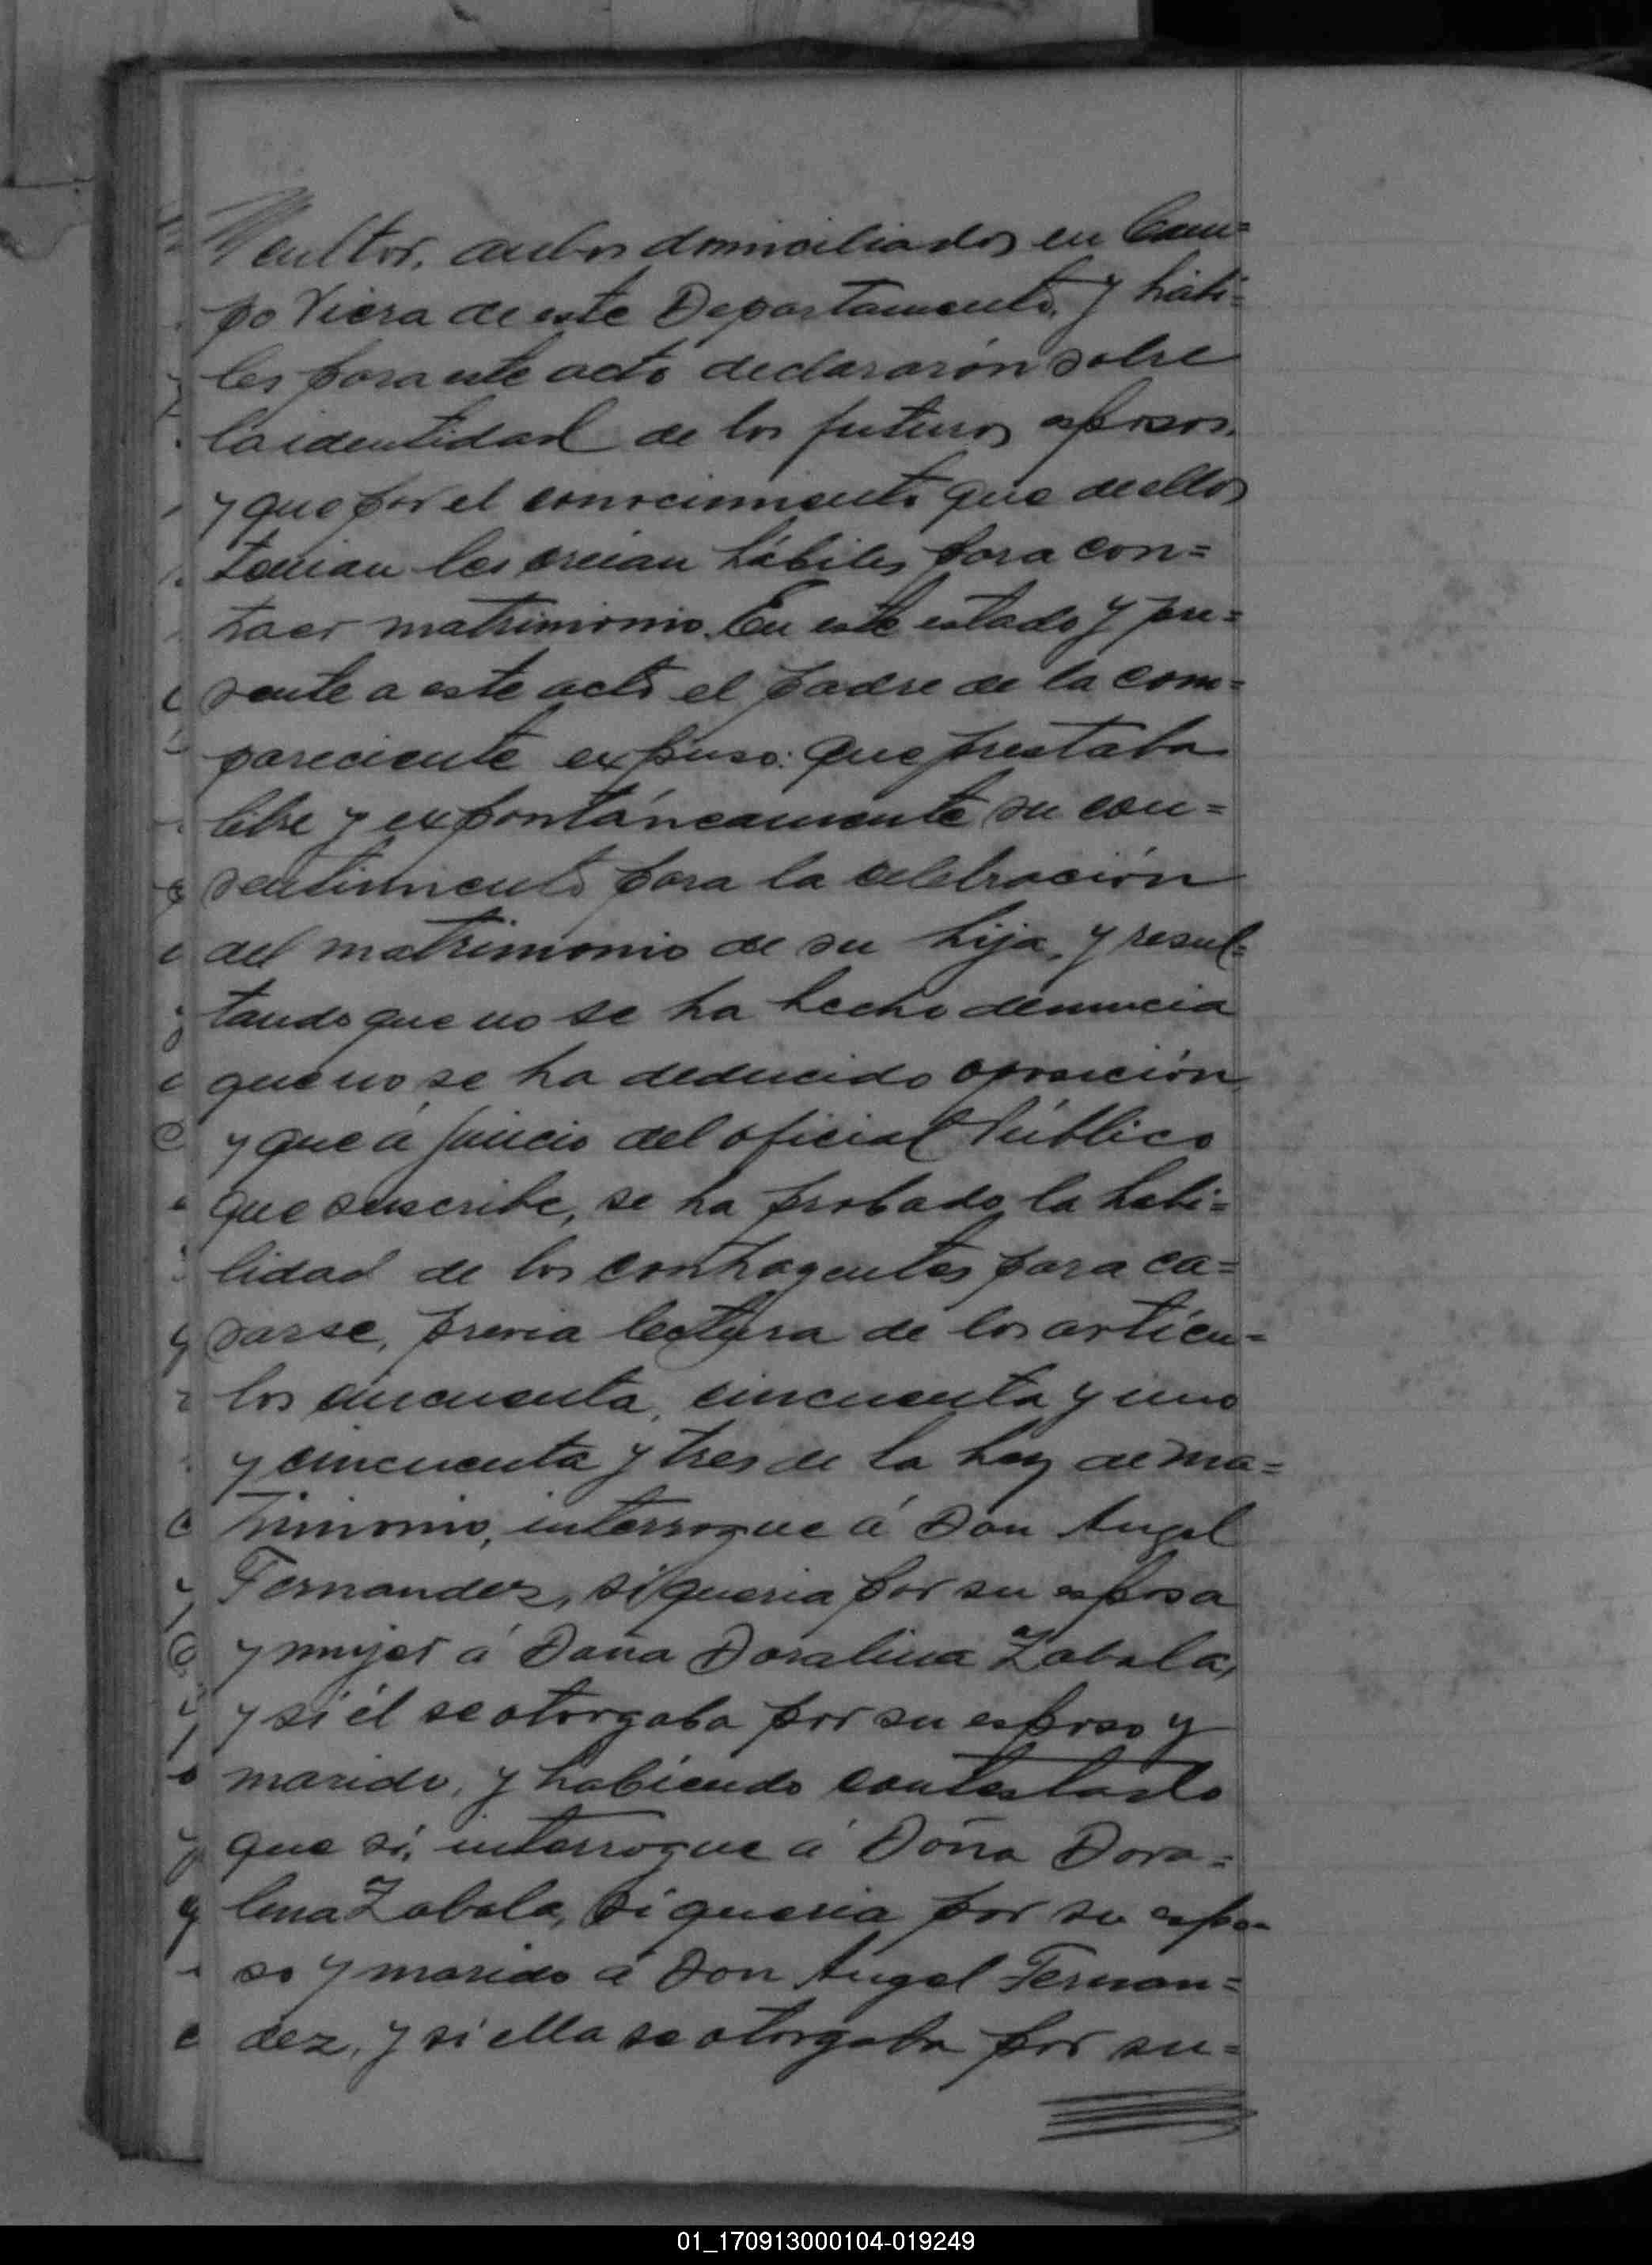 cultor. ambos domiciliados en Cam=
po Viera de este Departamento, y hábi=
les para este acto declararón sobre
la identidad de los futuros esposos.
y que por el conocimiento que de ellos
tenian les creian hábiles para con=
traer matrimonio. En este estado y pre=
sente a este acto el padre de la com=
pareciente expuso: que prestaba
libre y expontáneamente su con=
sentimiento para la celebración
del matrimonio de su hija, y resul=
tando que no se ha hecho denuncia
que no se ha deducido oposición,
y que á juicio del oficial Público
que suscribe, se ha probado la habi=
lidad de los contragentes para ca=
sarse, previa lectura de los artícu=
los cincuenta, cincuenta y uno
y cincuenta y tres de la Ley de Ma=
trimonio, interrogue á Don Angel
Fernandez, si queria por su esposa
y mujer á Doña Doralina Zabala,
y si él se otorgaba por su esposo y
marido, y habiendo contestado
que sí, interrogue á Doña Dora=
lina Zabala, si queria por su espo=
so y marido á Don Angel Fernan=
dez, y si ella se otorgaba por su=
01_170913000104-019249